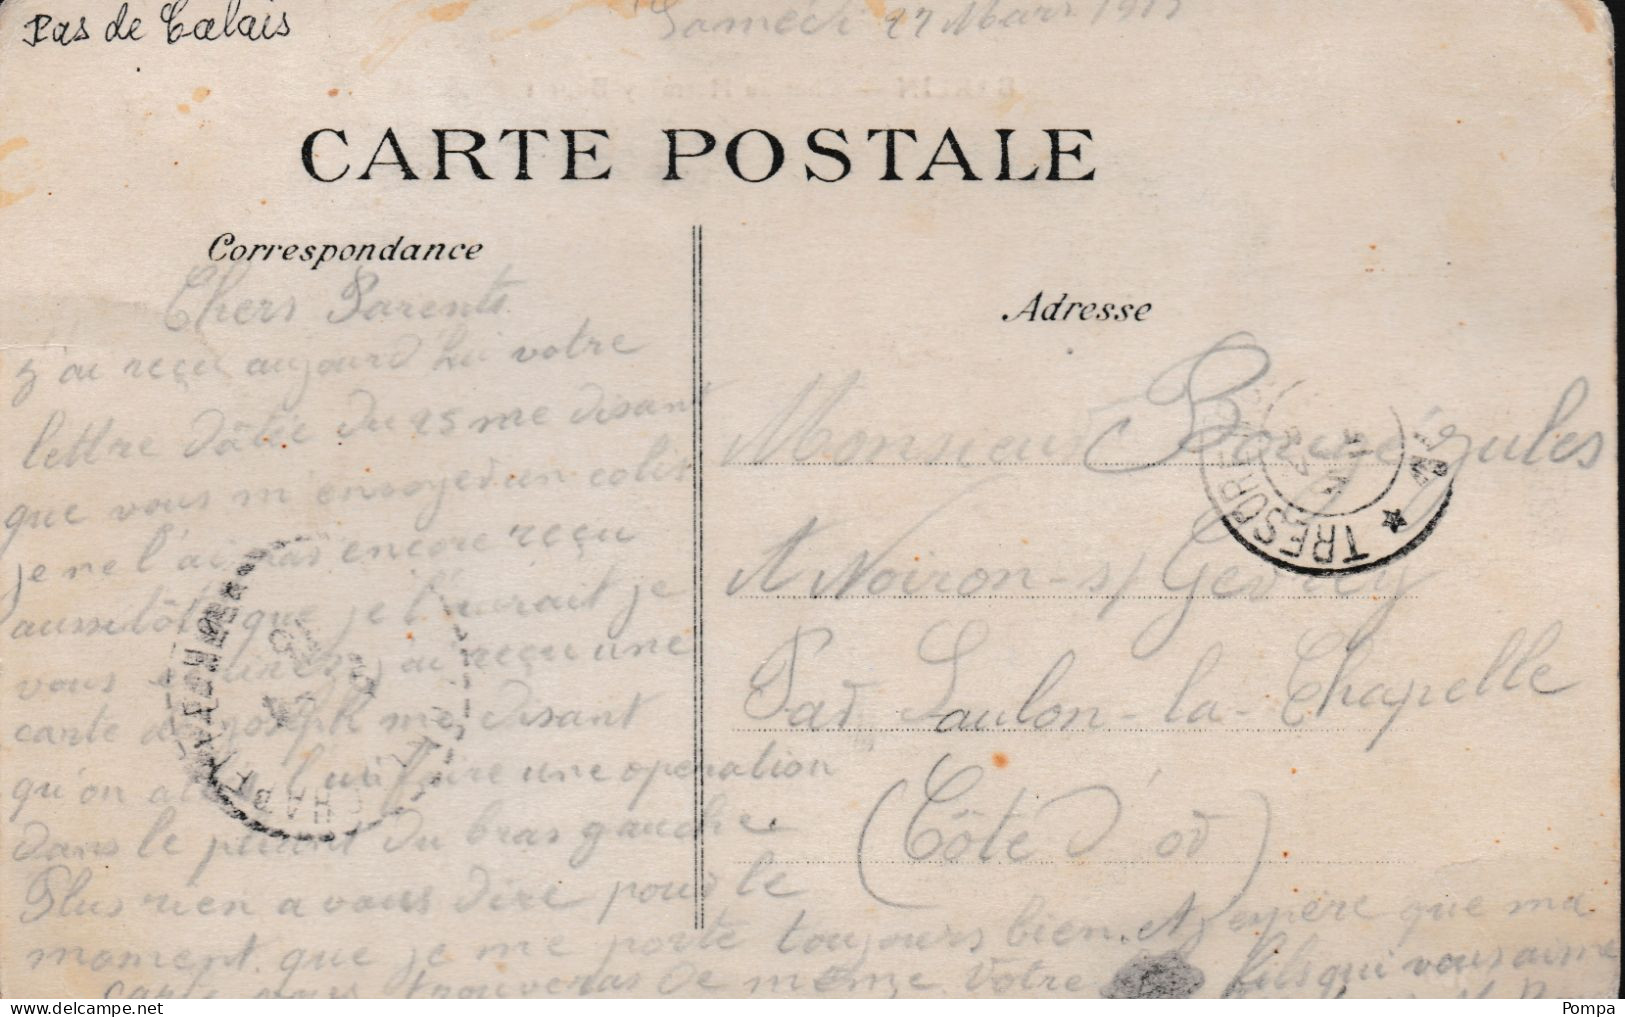 Pas de Calais
Samedi 27 Mars 1915
CARTE POSTALE
Correspondance
Adresse
Chers Parents
J'ai reçu aujourd hui votre
lettre dâtée du 25 me disant
que vous m envoyer un colis
je ne l'ai pas encore reçu
aussitôt que je l'aurait je
vous j'ai reçu une
carte de joseph me disant
qu'on a lui faire une operation
dans le du bras gauche.
Plus rien a vous dire pour le
moment. que je me porte toujours bien. et j espère que ma
carte vous trouveras de même. Votre fils qui vous aime
Monsieur Jules
A Noiron-s/Gevrey
Par Saulon-la-Chapelle
(Côte d'or)
TRESOR
★
Pompa